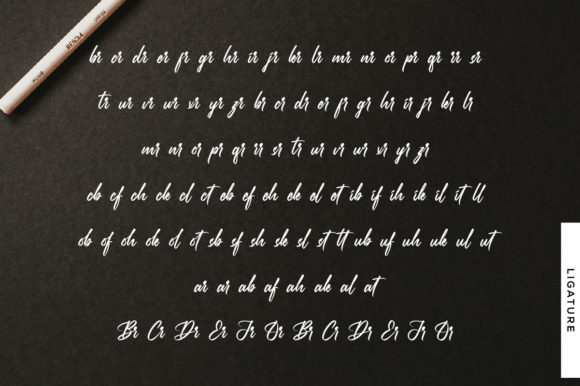 br cr dr er fr gr hr ir jr kr lr mr nr cr pr qr rr sr
tr ur vr wr xr yr zr br cr dr er fr gr hr ir jr kr lr
mr nr cr pr qr rr sr tr ur vr wr xr yr zr
cb cf ch ck cl ct eb ef eh ek el et ib if ih ik il it ll
ob of oh ok ol ot sb sf sh sk sl st tt ub uf uh uk ul ut
ar ar ab af ah ak al at
Br Cr Dr Er Fr Or Br Cr Dr Er Fr Or
LIGATURE